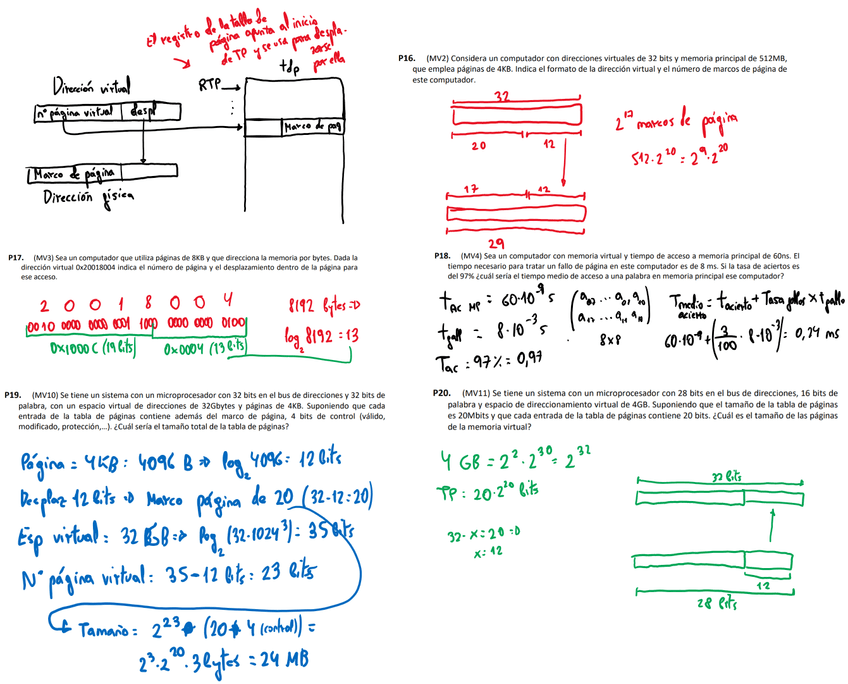 El registro de la tabla de
página apunta al inicio
de TP y se usa para despla-
zarse
por ella
tdp
RTP
Dirección virtual
nº página virtual despl
Marco de pag
Marco de página
Dirección física
P16. (MV2) Considera un computador con direcciones virtuales de 32 bits y memoria principal de 512MB,
que emplea páginas de 4KB. Indica el formato de la dirección virtual y el número de marcos de página de
este computador.
32
20 12
17 12
29
2^17 marcos de página
512·2^20 = 2^9·2^20
P17. (MV3) Sea un computador que utiliza páginas de 8KB y que direcciona la memoria por bytes. Dada la
dirección virtual 0x20018004 indica el número de página y el desplazamiento dentro de la página para
ese acceso.
2 0 0 1 8 0 0 4
0010 0000 0000 0001 1000 0000 0000 0100
0x1000C (19 bits) 0x0004 (13 bits)
8192 bytes =>
log2 8192 = 13
P18. (MV4) Sea un computador con memoria virtual y tiempo de acceso a memoria principal de 60ns. El
tiempo necesario para tratar un fallo de página en este computador es de 8 ms. Si la tasa de aciertos es
del 97% ¿cuál sería el tiempo medio de acceso a una palabra en memoria principal ese computador?
t ac MP = 60·10^-9 s
t fall = 8·10^-3 s
Tac : 97% = 0,97
8x8
Tmedio = tacierto + Tasa fallos x t fallo
acierto
60·10^-9 + (3/100 · 8·10^-3) = 0,24 ms
P19. (MV10) Se tiene un sistema con un microprocesador con 32 bits en el bus de direcciones y 32 bits de
palabra, con un espacio virtual de direcciones de 32Gbytes y páginas de 4KB. Suponiendo que cada
entrada de la tabla de páginas contiene además del marco de página, 4 bits de control (válido,
modificado, protección,...). ¿Cuál sería el tamaño total de la tabla de páginas?
Página = 4KB : 4096 B => log2 4096 = 12 bits
Desplaz 12 bits => Marco página de 20 (32-12=20)
Esp virtual : 32 GB => log2 (32·1024^3) = 35 bits
Nº página virtual : 35-12 bits = 23 bits
Tamaño : 2^23 · (20+4 (control)) =
2^3·2^20·3 bytes = 24 MB
P20. (MV11) Se tiene un sistema con un microprocesador con 28 bits en el bus de direcciones, 16 bits de
palabra y espacio de direccionamiento virtual de 4GB. Suponiendo que el tamaño de la tabla de páginas
es 20Mbits y que cada entrada de la tabla de páginas contiene 20 bits. ¿Cuál es el tamaño de las páginas
de la memoria virtual?
4 GB = 2^2·2^30 = 2^32
TP : 20·2^20 bits
32-x = 20 =>
x = 12
32 bits
12
28 bits